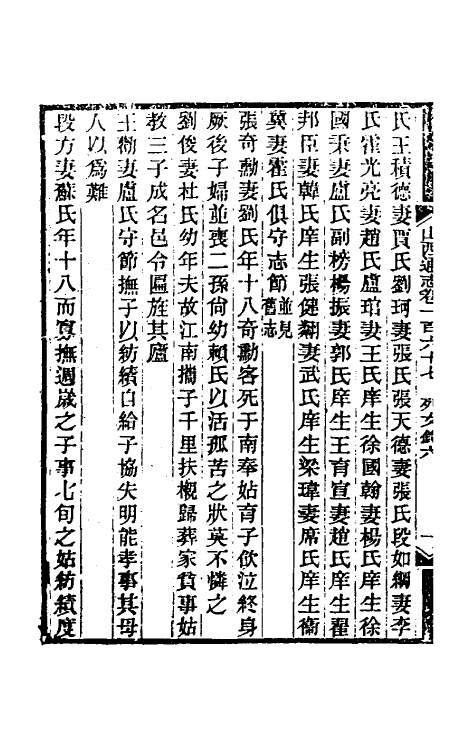 山西通志卷一百六十七 列女錄六 一
氏王積德妻賈氏劉珂妻張氏張天德妻張氏段如綱妻李
氏霍光亮妻趙氏盧琯妻王氏庠生徐國翰妻楊氏庠生徐
國秉妻盧氏副榜楊振妻郭氏庠生王育宣妻趙氏庠生翟
邦臣妻韓氏庠生張健翮妻武氏庠生梁瑋妻席氏庠生衞
冀妻霍氏俱守志節並見舊志
張奇勳妻劉氏年十八奇勳客死于南奉姑育子飲泣終身
厥後子婦並喪二孫尙幼賴氏以活孤苦之狀莫不憐之
劉俊妻杜氏幼年夫故江南攜子千里扶櫬歸葬家貧事姑
教三子成名邑令匾旌其廬
王衞妻盧氏守節撫子以紡績自給子協失明能孝事其母
人以爲難
段方妻蘇氏年十八而寡撫週歲之子事七旬之姑紡績度